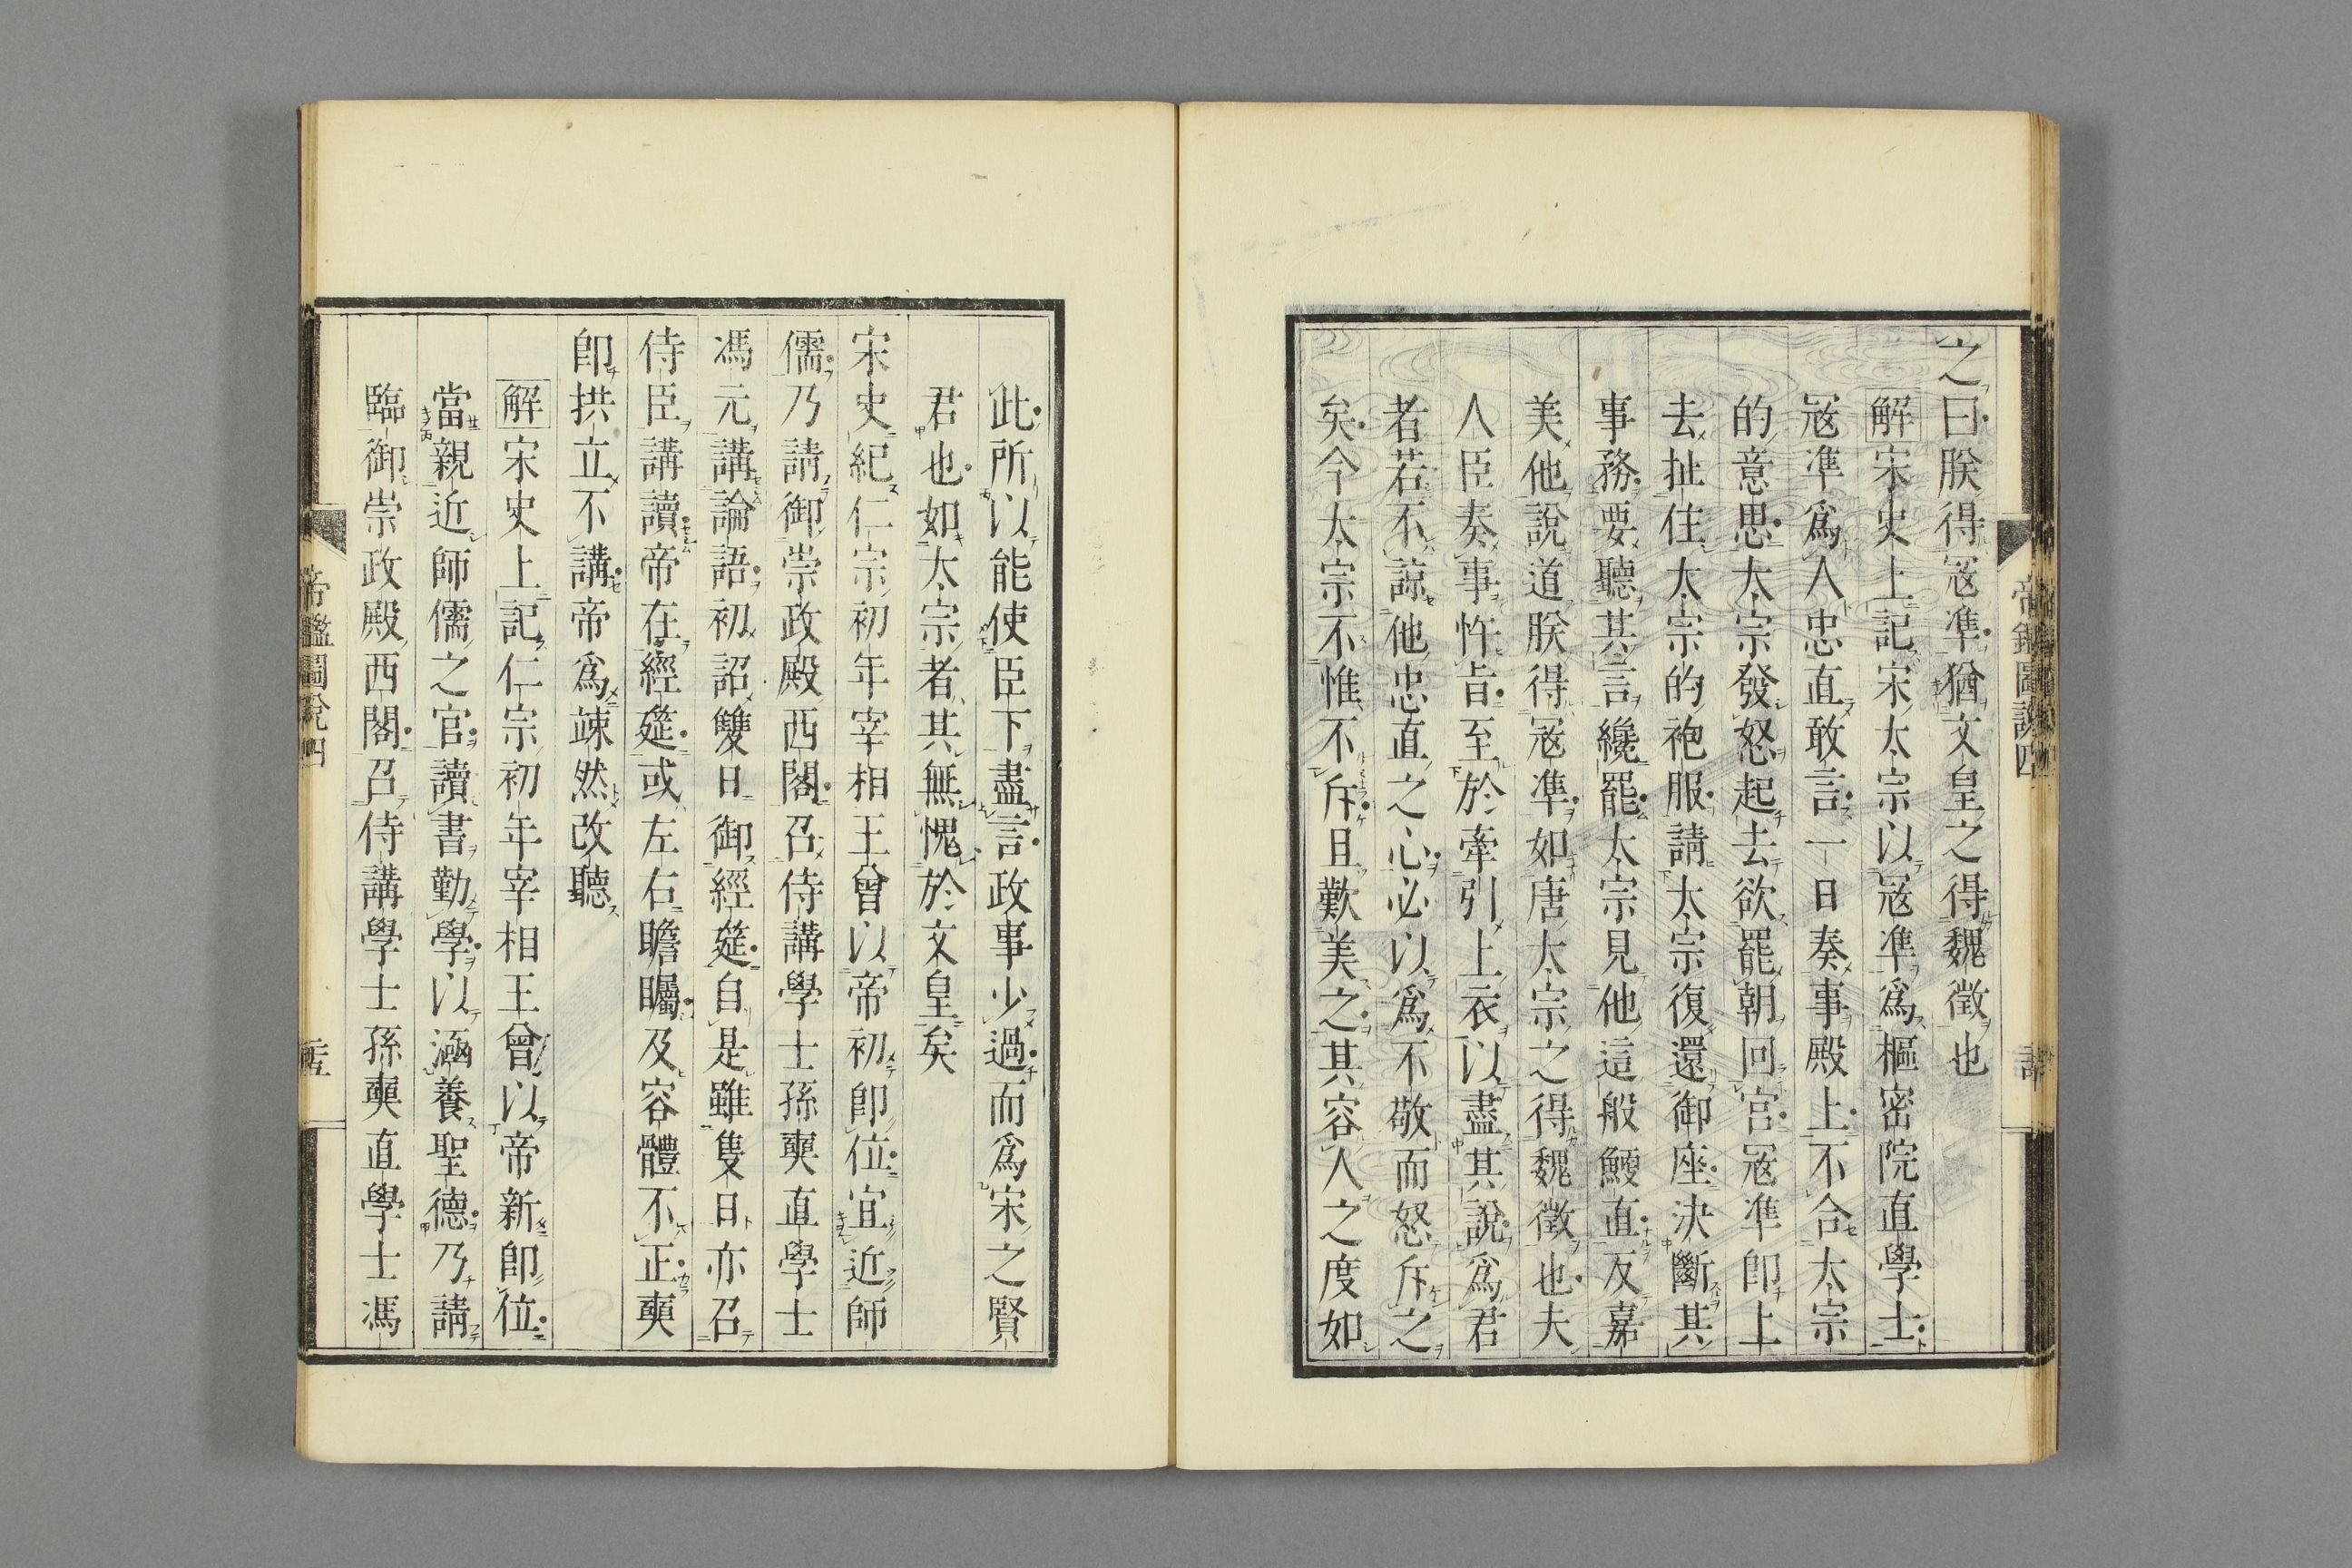 之曰朕得冦凖猶文皇之得魏徵也
解宋史上記宋太宗以冦凖爲樞密院直學士
冦凖爲人忠直敢言一日奏事殿上不合太宗
的意思太宗發怒起去欲罷朝回宮冦凖即上
去扯住太宗的袍服請太宗復還御座決斷其
事務要聽其言纔罷太宗見他這般鯁直反嘉
美他說道朕得冦凖如唐太宗之得魏徵也夫
人臣奏事忤旨至於牽引上衣以盡其說爲君
者若不諒他忠直之心必以爲不敬而怒斥之
矣今太宗不惟不斥且歎美之其容人之度如
此所以能使臣下盡言政事少過而爲宋之賢
君也如太宗者其無愧於文皇矣
宋史紀仁宗初年宰相王曾以帝初卽位宜近師
儒乃請御崇政殿西閣召侍講學士孫奭直學士
馮元講論語初詔雙日御經筵自是雖隻日亦召
侍臣講讀帝在經筵或左右瞻矚及容體不正奭
卽拱立不講帝爲竦然改聽
解宋史上記仁宗初年宰相王曾以帝新卽位
當親近師儒之官讀書勤學以涵養聖德乃請
臨御崇政殿西閣召侍講學士孫奭直學士馮
帝鑑圖說四